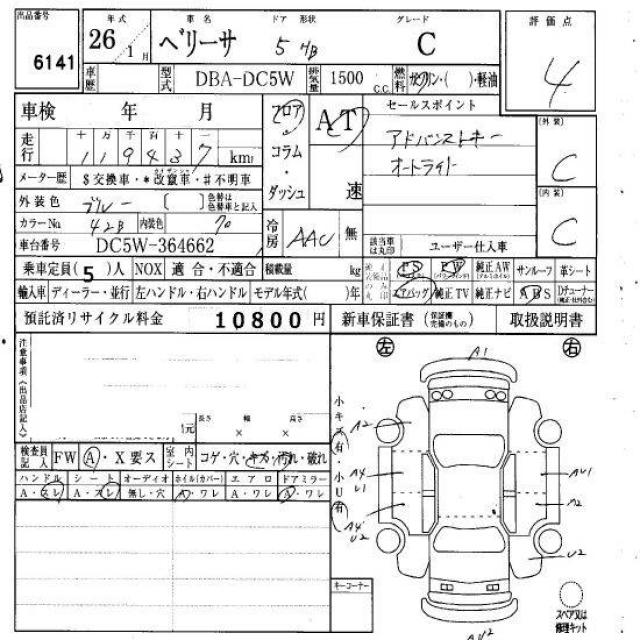 出品番号 6141
年式 26年 1月
車名 ベリーサ
ドア 形状 5 HB
グレード C
評価点 4
車歴
型式 DBA-DC5W
排気量 1500 C.C.
燃料 ガソリン・( )・軽油
車検 年 月
フロア・コラム・ダッシュ
AT 速
セールスポイント
アドバンストキー
オートライト
(外装) C
(内装) C
走行 十 万 千 百 十 一
119437 km
メーター歴 $交換車・*改竄車・#不明車
外装色 ブルー [ ] 色替は色替車と記入
カラーNo 42B 内装色 70
冷房 AAC 無
車台番号 DC5W-364662
該当車は丸印 ユーザー仕入車
乗車定員(5)人 NOX 適合・不適合 積載量 kg
PS PW 純正AW サンルーフ 革シート
輸入車 ディーラー・並行 左ハンドル・右ハンドル モデル年式( )年
エアバッグ 純正TV 純正ナビ ABS Dチューナー
預託済リサイクル料金 10800 円
新車保証書 (保証欄完備のもの) 取扱説明書
注意事項《出品店記入》
左 右
長さ 幅 高さ
× ×
検査員記入 FW A・X要ス 室内シート コゲ・穴・キズ・汚れ・破れ
ハンドル シート オーディオ ホイル(カバー) エアロ ドアミラー
A・スレ A・スレ 無し・穴 A・ワレ A・ワレ A・ワレ
小キズ(有)・小U(有)
A1
A2
A4
U1
AU1
A2
A4
U2
U2
AU2
キーコーナー
スペア又は修理キット